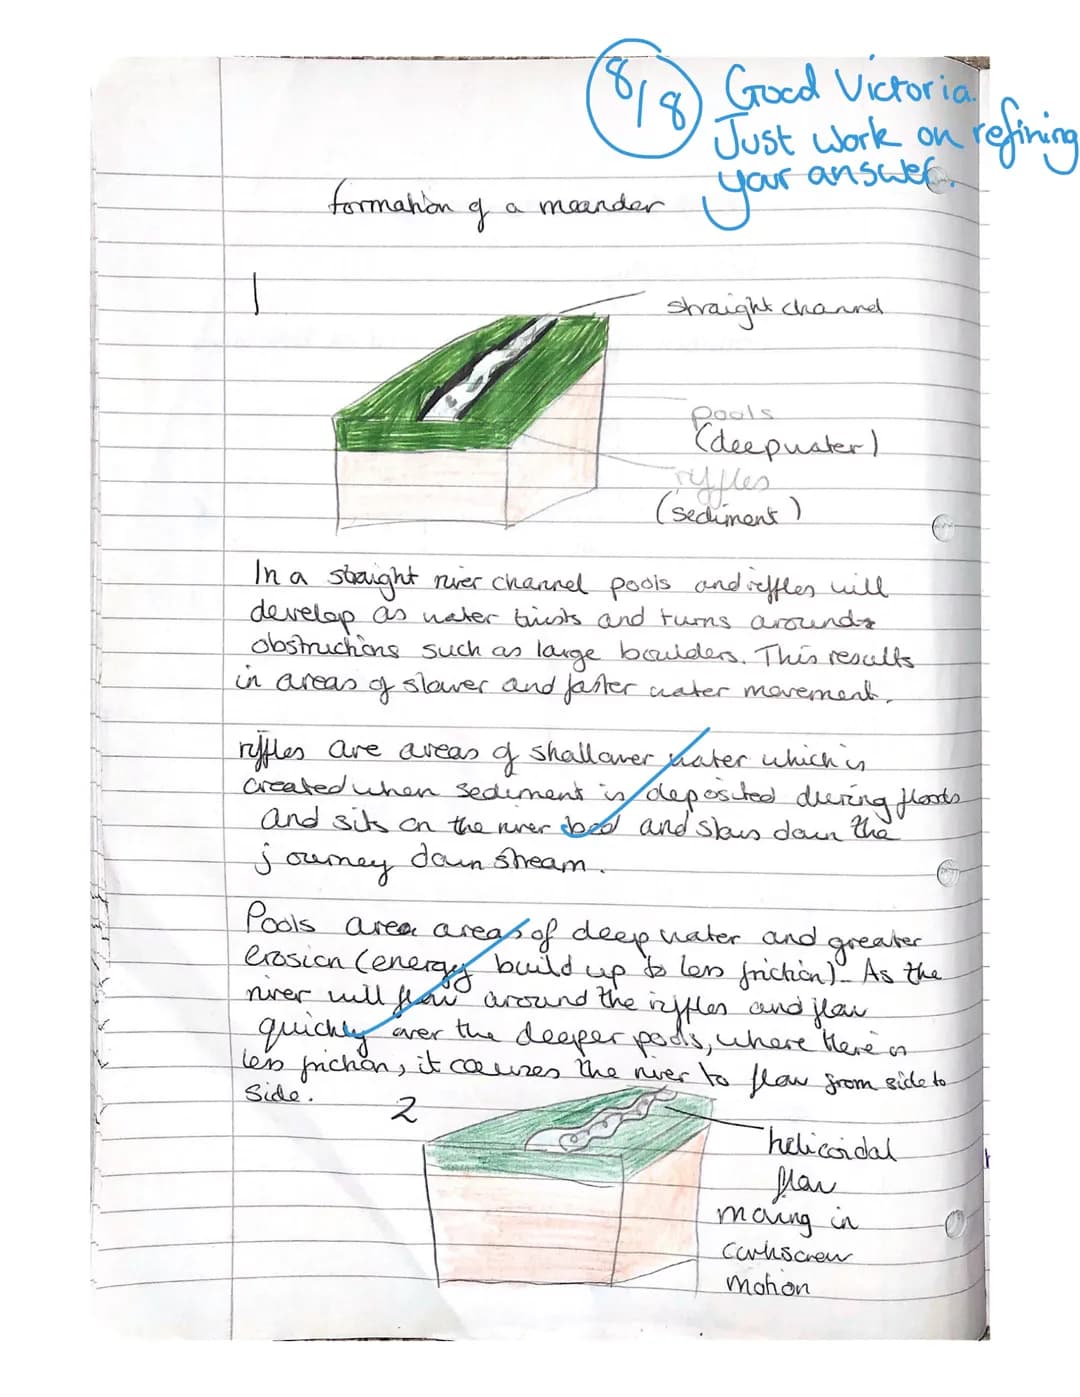 8/8
Good Victoria.
Just work on refining
your answer.
formation of a meander
1
straight channel
pools
(deepwater)
riffles
(sediment)
In a straight river channel pools and riffles will
develop as water twists and turns around
obstructions such as large boulders. This results
in areas of slower and faster water movement.
riffles are areas of shallower water which is
created when sediment is deposited during floods
and sits on the river bed and slows down the
journey down stream.
Pools area areas of deep water and greater
erosion (energy build up to less friction). As the
river will flow around the riffles and flow
quickly over the deeper pools, where there is
less friction, it causes the river to flow from side to
side.
2
helicoidal
flow
moving in
corkscrew
motion